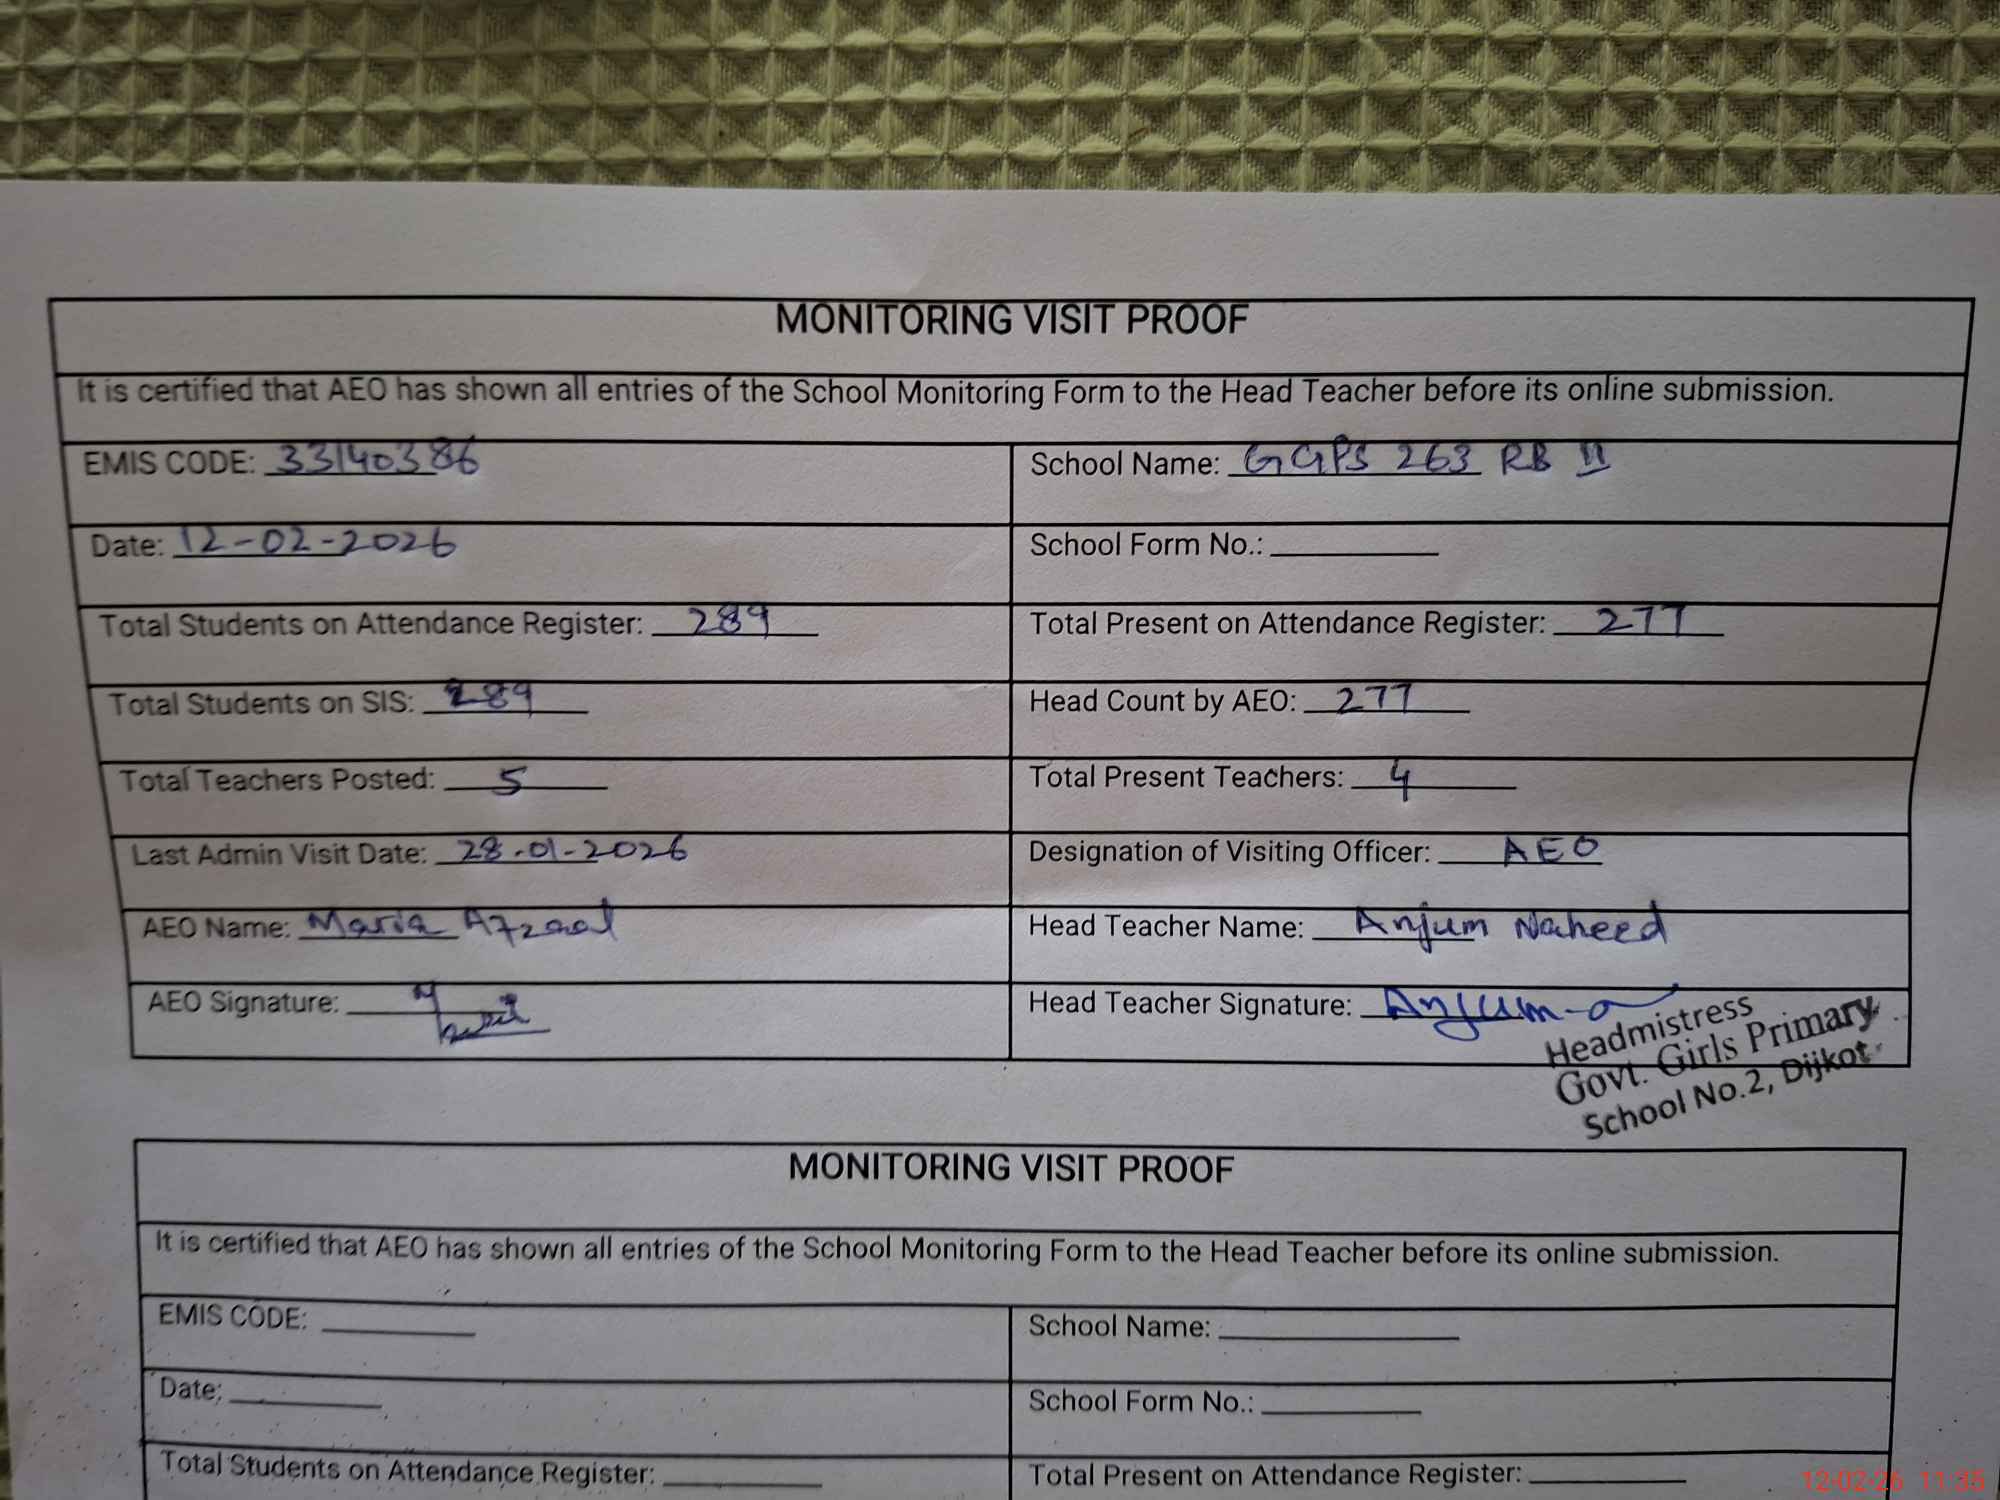 MONITORING VISIT PROOF
It is certified that AEO has shown all entries of the School Monitoring Form to the Head Teacher before its online submission.
EMIS CODE: 33140386 School Name: GGPS 263 RB II
Date: 12-02-2026 School Form No.:
Total Students on Attendance Register: 289 Total Present on Attendance Register: 277
Total Students on SIS: 289 Head Count by AEO: 277
Total Teachers Posted: 5 Total Present Teachers: 4
Last Admin Visit Date: 28-01-2026 Designation of Visiting Officer: AEO
AEO Name: Maria Afzaal Head Teacher Name: Anjum Naheed
AEO Signature: Head Teacher Signature: Anjum
Headmistress
Govt. Girls Primary
School No.2, Dijkot
MONITORING VISIT PROOF
It is certified that AEO has shown all entries of the School Monitoring Form to the Head Teacher before its online submission.
EMIS CODE: School Name:
Date: School Form No.:
Total Students on Attendance Register: Total Present on Attendance Register:
12-02-26 11:35